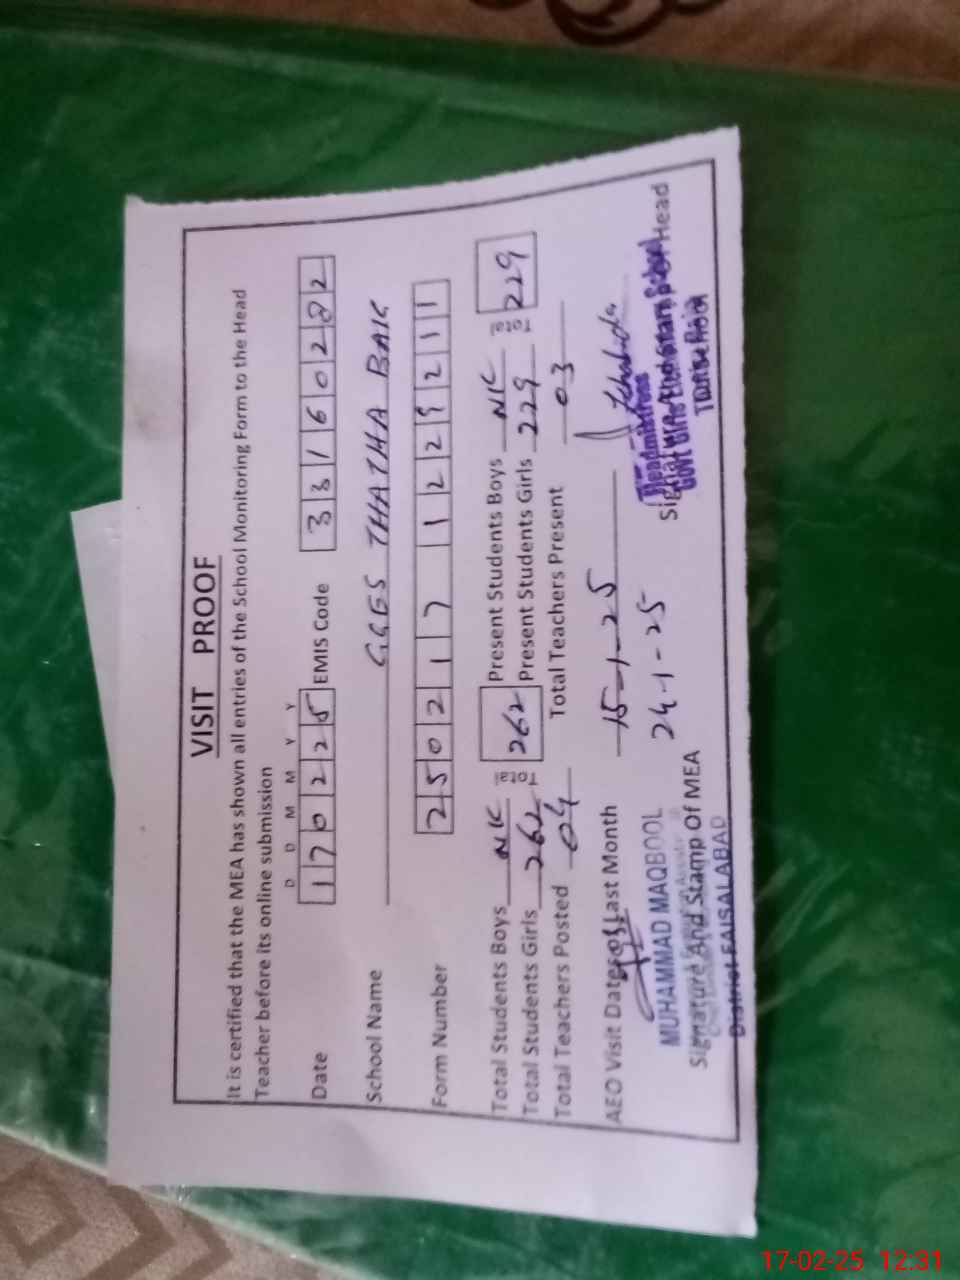 VISIT PROOF
It is certified that the MEA has shown all entries of the School Monitoring Form to the Head
Teacher before its online submission
D D M M Y Y
Date 170225 EMIS Code 33160222
School Name GGES THATHA BAIK
Form Number 2502171229211
Total Students Boys NIL Present Students Boys NIL
Total 262 Total 229
Total Students Girls 262 Present Students Girls 229
Total Teachers Posted 04 Total Teachers Present 03
AEO Visit Dates Last Month 15-1-25
24-1-25
MUHAMMAD MAQBOOL
Signature And Stamp Of MEA
District FAISALABAD
Headmistress
Signature And Stamp Of Head
Govt Girls Elementary School
17-02-25 12:31